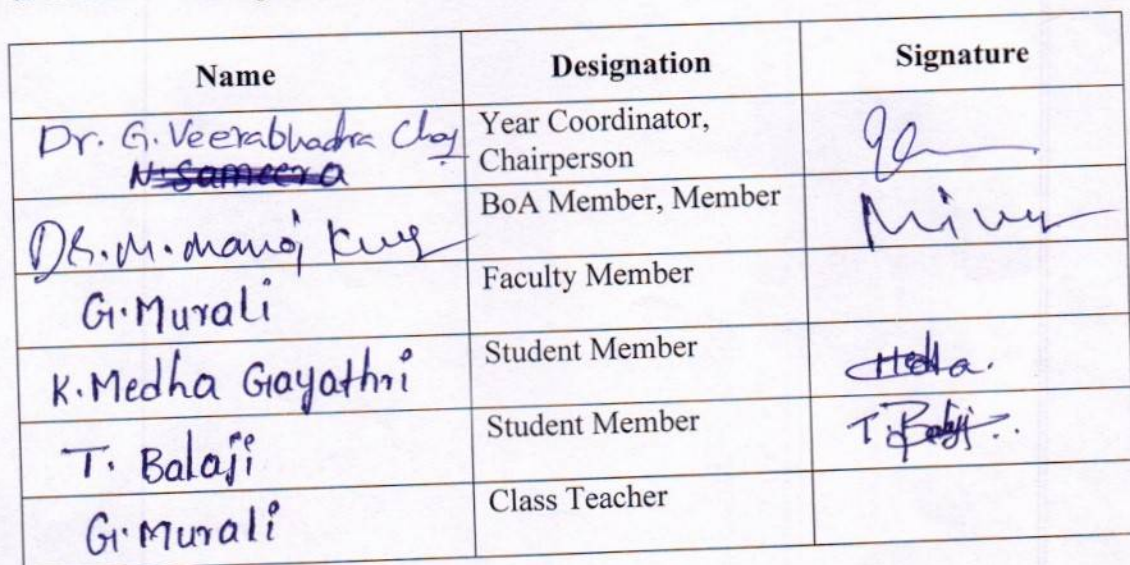 Name Designation Signature
Dr. G. Veerabhadra Choy Year Coordinator,
N. Sameera Chairperson
Dr. M. Manoj BoA Member, Member
G. Murali Faculty Member
K. Medha Gayathri Student Member Medha.
T. Balaji Student Member T. Balaji
G. Murali Class Teacher